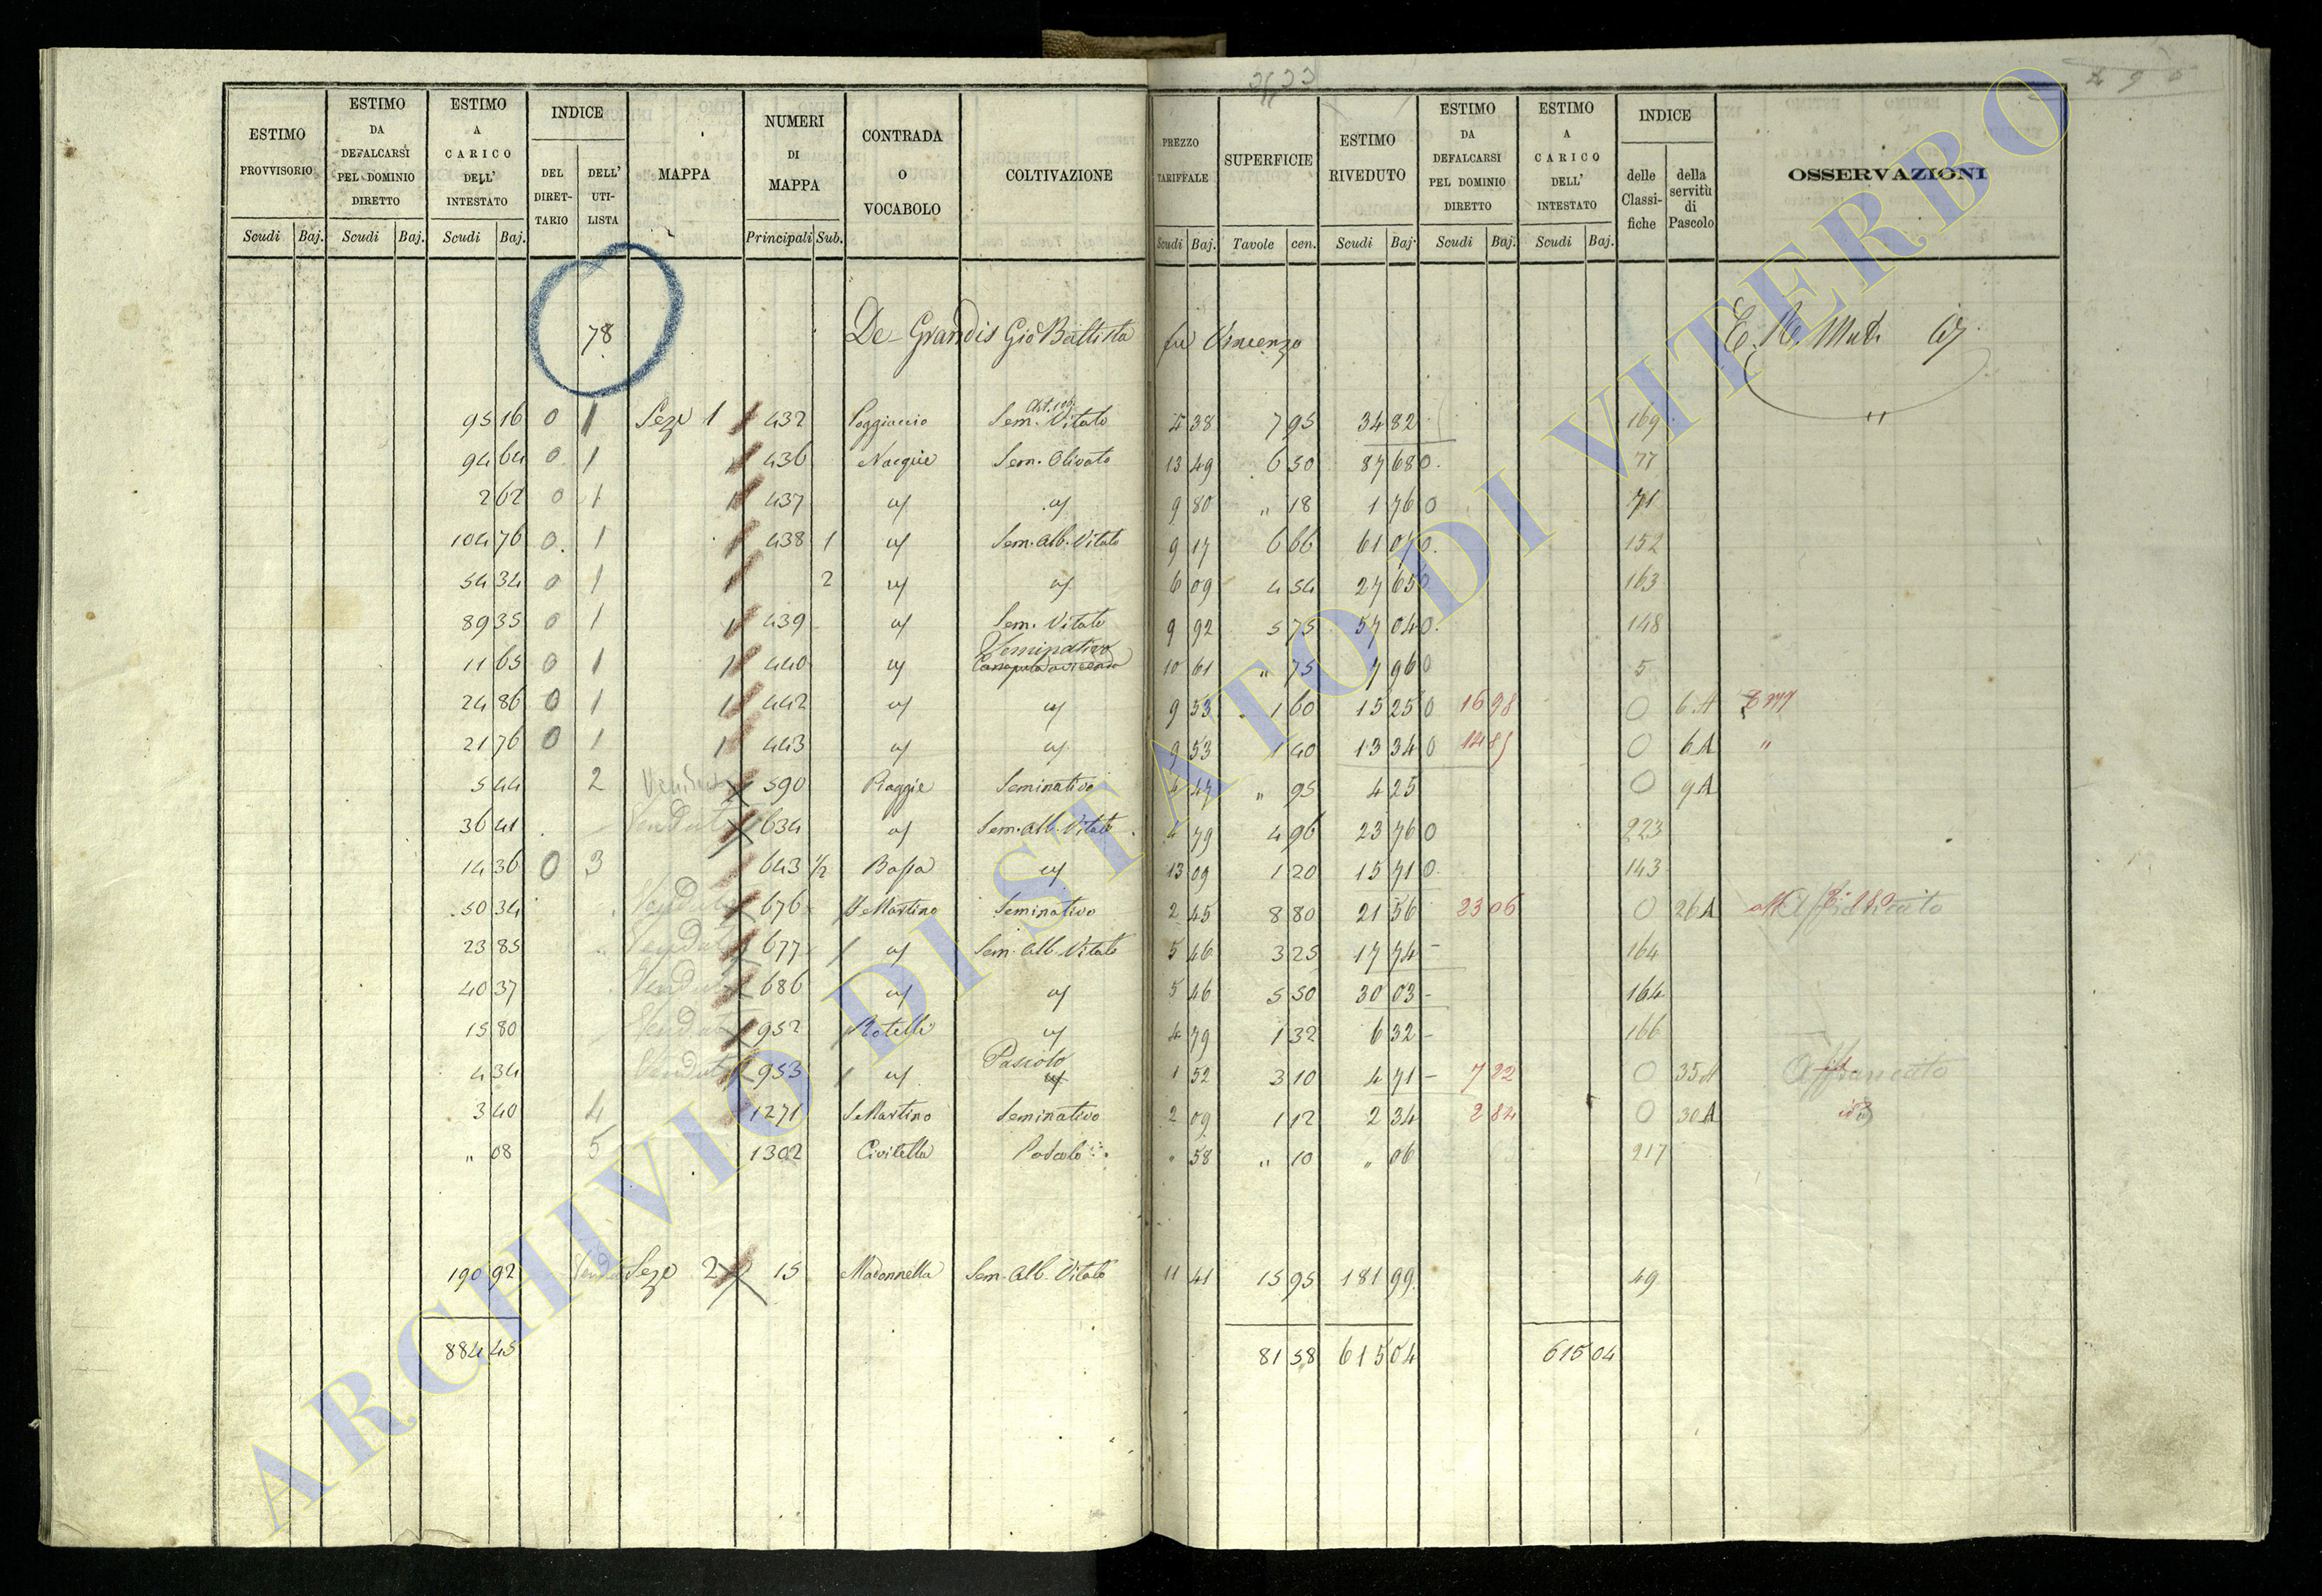 ESTIMO PROVVISORIO ESTIMO DA DEFALCARSI PEL DOMINIO DIRETTO ESTIMO A CARICO DELL' INTESTATO INDICE DEL DIRETTARIO DELL' UTILISTA MAPPA NUMERI DI MAPPA CONTRADA O VOCABOLO COLTIVAZIONE PREZZO TARIFFALE SUPERFICIE ESTIMO RIVEDUTO ESTIMO DA DEFALCARSI PEL DOMINIO DIRETTO ESTIMO A CARICO DELL' INTESTATO INDICE delle Classifiche della servitù di Pascolo OSSERVAZIONI
Scudi Baj. Scudi Baj. Scudi Baj. Principali Sub. Scudi Baj. Tavole cen. Scudi Baj. Scudi Baj. Scudi Baj.
78 De-Grandis Gio Battista fu Vincenzo
95 16 0 1 Seze 1 432 Poggiaccio Sem. Vitato 4 38 7 95 34 82 169 "
94 64 0 1 1 436 Nacque Sem. Olivato 13 49 6 50 87 68 0 77
2 62 0 1 1 437 9 80 " 18 1 76 0 71
104 76 0 1 1 438 1 Sem. Alb. Vitato 9 17 6 66 61 07 0 152
54 34 0 1 1 2 6 09 4 54 27 65 0 163
89 35 0 1 1 439 Sem. Vitato 9 92 5 75 57 04 0 148
11 65 0 1 1 440 Seminativo 10 61 " 75 7 96 0 5
24 86 0 1 1 442 9 53 1 60 15 25 0 16 98 0 6 A
21 76 0 1 1 443 9 53 1 40 13 34 0 14 85 0 6 A "
5 44 2 Venduto 590 Piaggie Seminativo 4 47 " 95 4 25 0 9 A
36 41 Venduto 634 Sem. Alb. Vitato 4 79 4 96 23 76 0 223
14 36 0 3 643 1/2 Bassa 13 09 1 20 15 71 0 143
50 34 Venduto 676 S Martino Seminativo 2 45 8 80 21 56 23 06 0 26 A
23 85 Venduto 677 Sem. Alb. Vitato 5 46 3 25 17 74 164
40 37 Venduto 686 5 46 5 50 30 03 164
15 80 Venduto 952 Rotelle 4 79 1 32 6 32 166
4 34 Venduto 953 Pascolo 1 52 3 10 4 71 7 22 0 35 A Affrancato
3 40 4 1271 S Martino Seminativo 2 09 1 12 2 34 2 84 0 30 A
" 08 5 1302 Civitella Pascolo " 58 " 10 " 06 217
190 92 Seze 2 15 Madonnella Sem. Alb. Vitato 11 41 15 95 181 99 49
884 45 81 58 615 04 615 04
ARCHIVIO DI STATO DI VITERBO